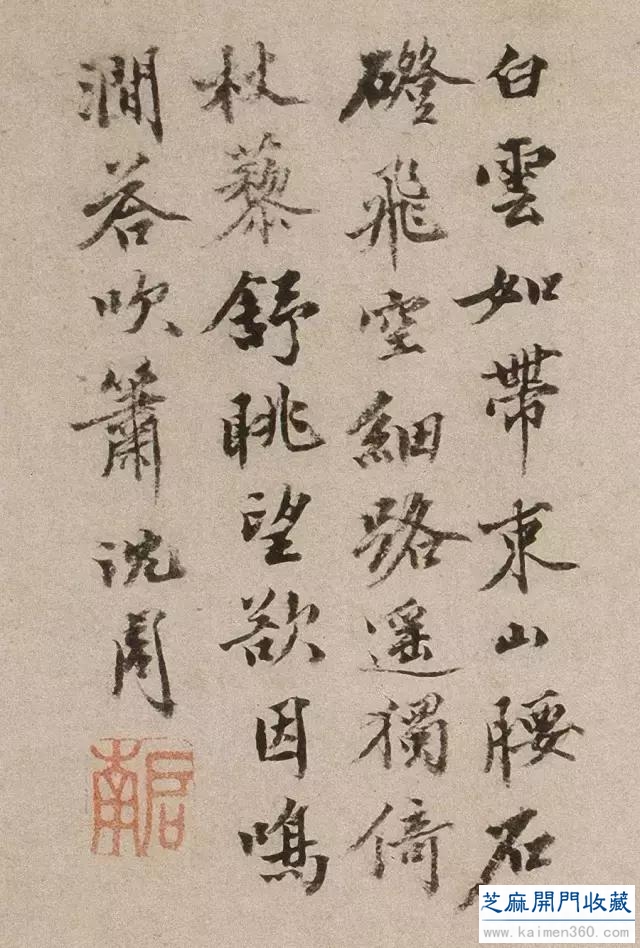 白雲如帶束山腰石
磴飛空細路遥獨倚
杖藜舒眺望欲因鳴
澗荅吹簫沈周
啓南
芝麻開門收藏
www.kaimen360.com